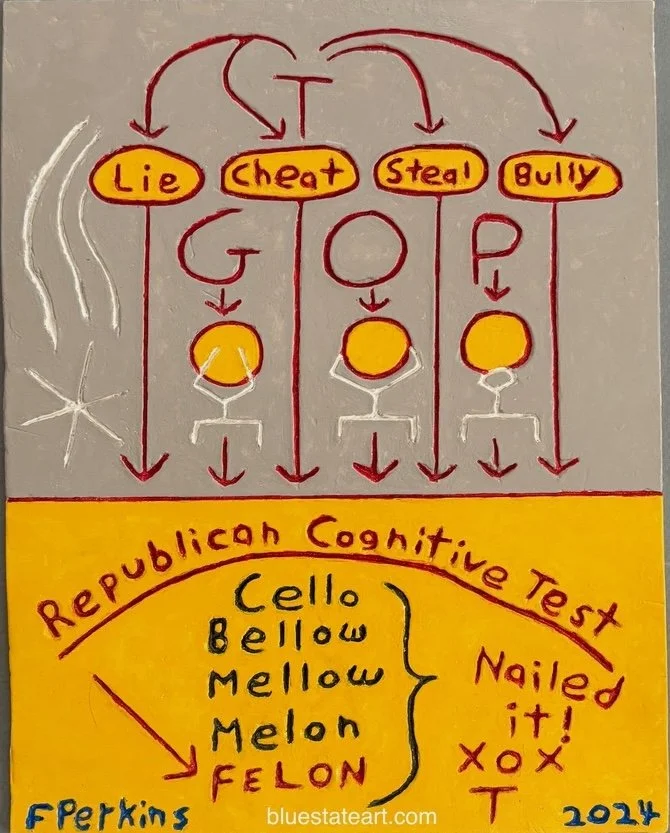 T
Lie Cheat Steal Bully
G O P
Republican Cognitive Test
Cello
Bellow
Mellow
Melon
FELON
Nailed
it!
XOX
T
FPerkins
bluestateart.com
2024